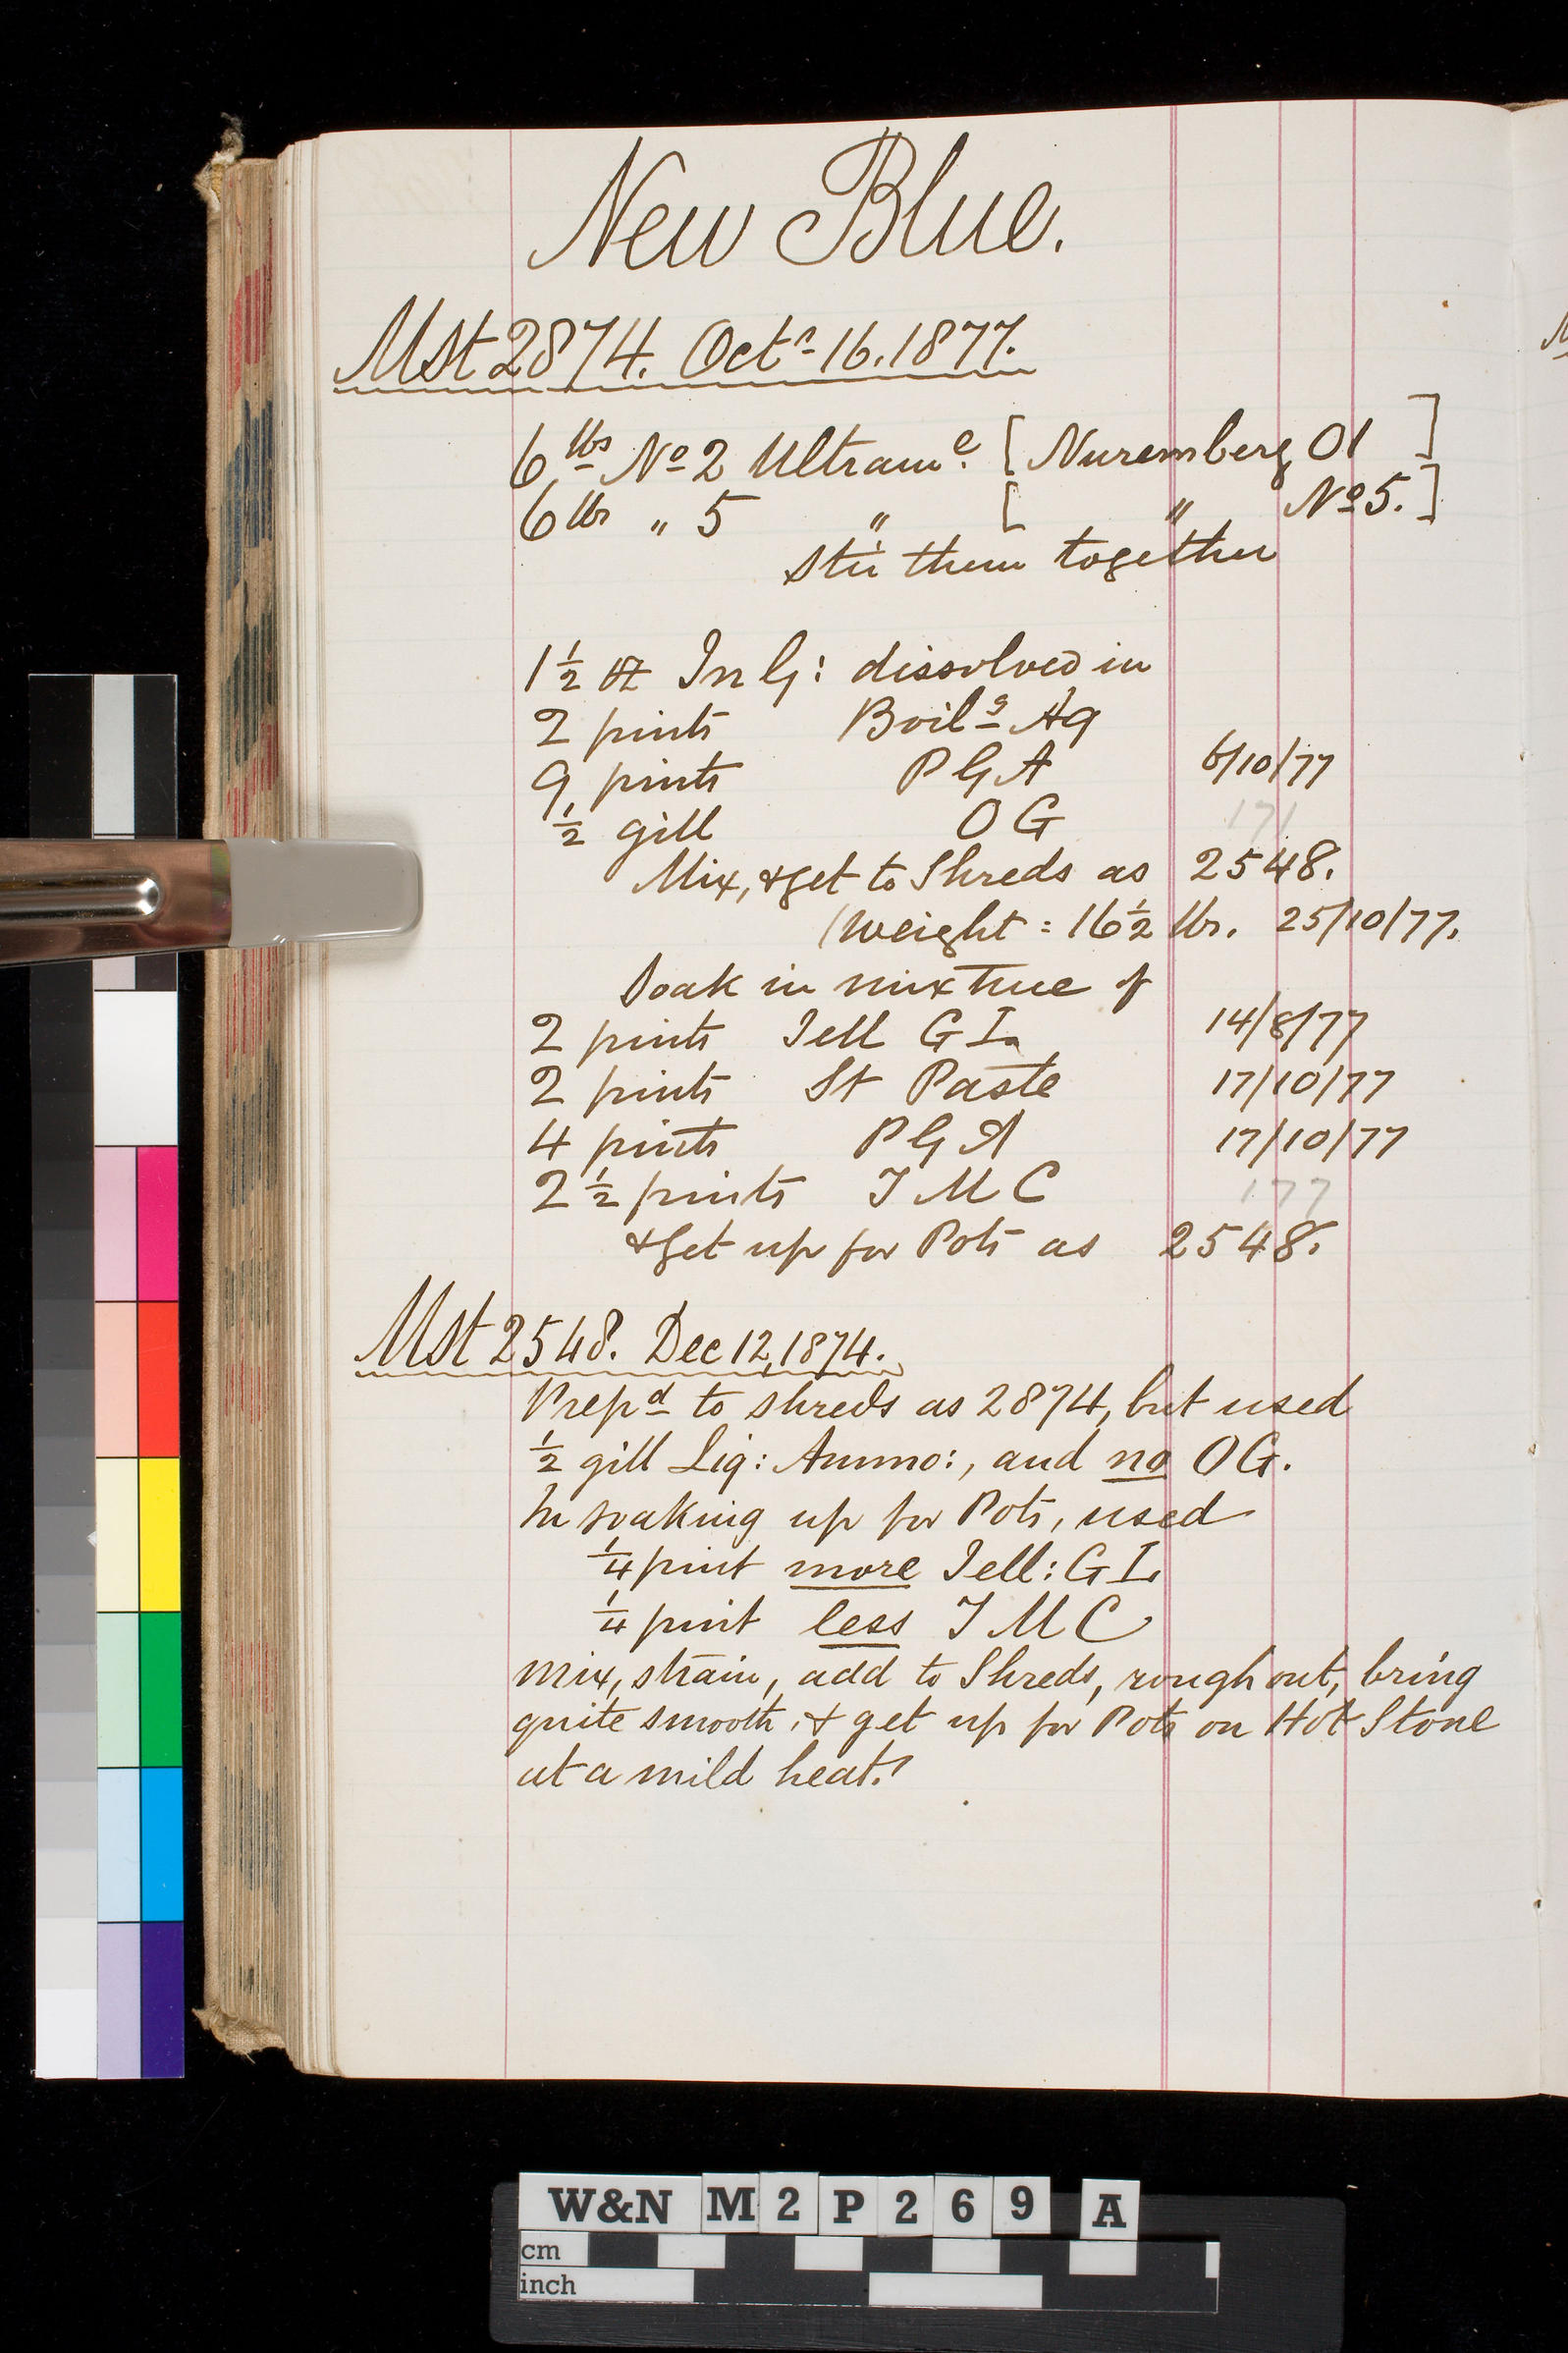 New Blue.
Mst 2874. Octr 16. 1877.
6 lbs No 2 Ultrame. [Nuremberg 01 ]
6 lbs " 5 " [ " No 5.]
Stir them together
1½ oz In G: dissolved in
2 pints Boilg Aq
9 pints P G A 6/10/77
½ gill O G 171
Mix, & get to Shreds as 2548.
(Weight = 16½ lbs. 25/10/77.
Soak in mixture of
2 pints Jell G I. 14/8/77
2 pints St Paste 17/10/77
4 pints P G A 17/10/77
2½ pints T M C 177
& get up for Pots as 2548.
Mst 2548. Dec 12, 1874.
Prepd to shreds as 2874, but used
½ gill Liq: Ammo:, and no OG.
In soaking up for Pots, used
¼ pint more Jell: G I.
¼ pint less T M C
Mix, strain, add to Shreds, rough out, bring
quite smooth, & get up for Pots on Hot Stone
at a mild heat.
W&N M 2 P 2 6 9 A
cm
inch